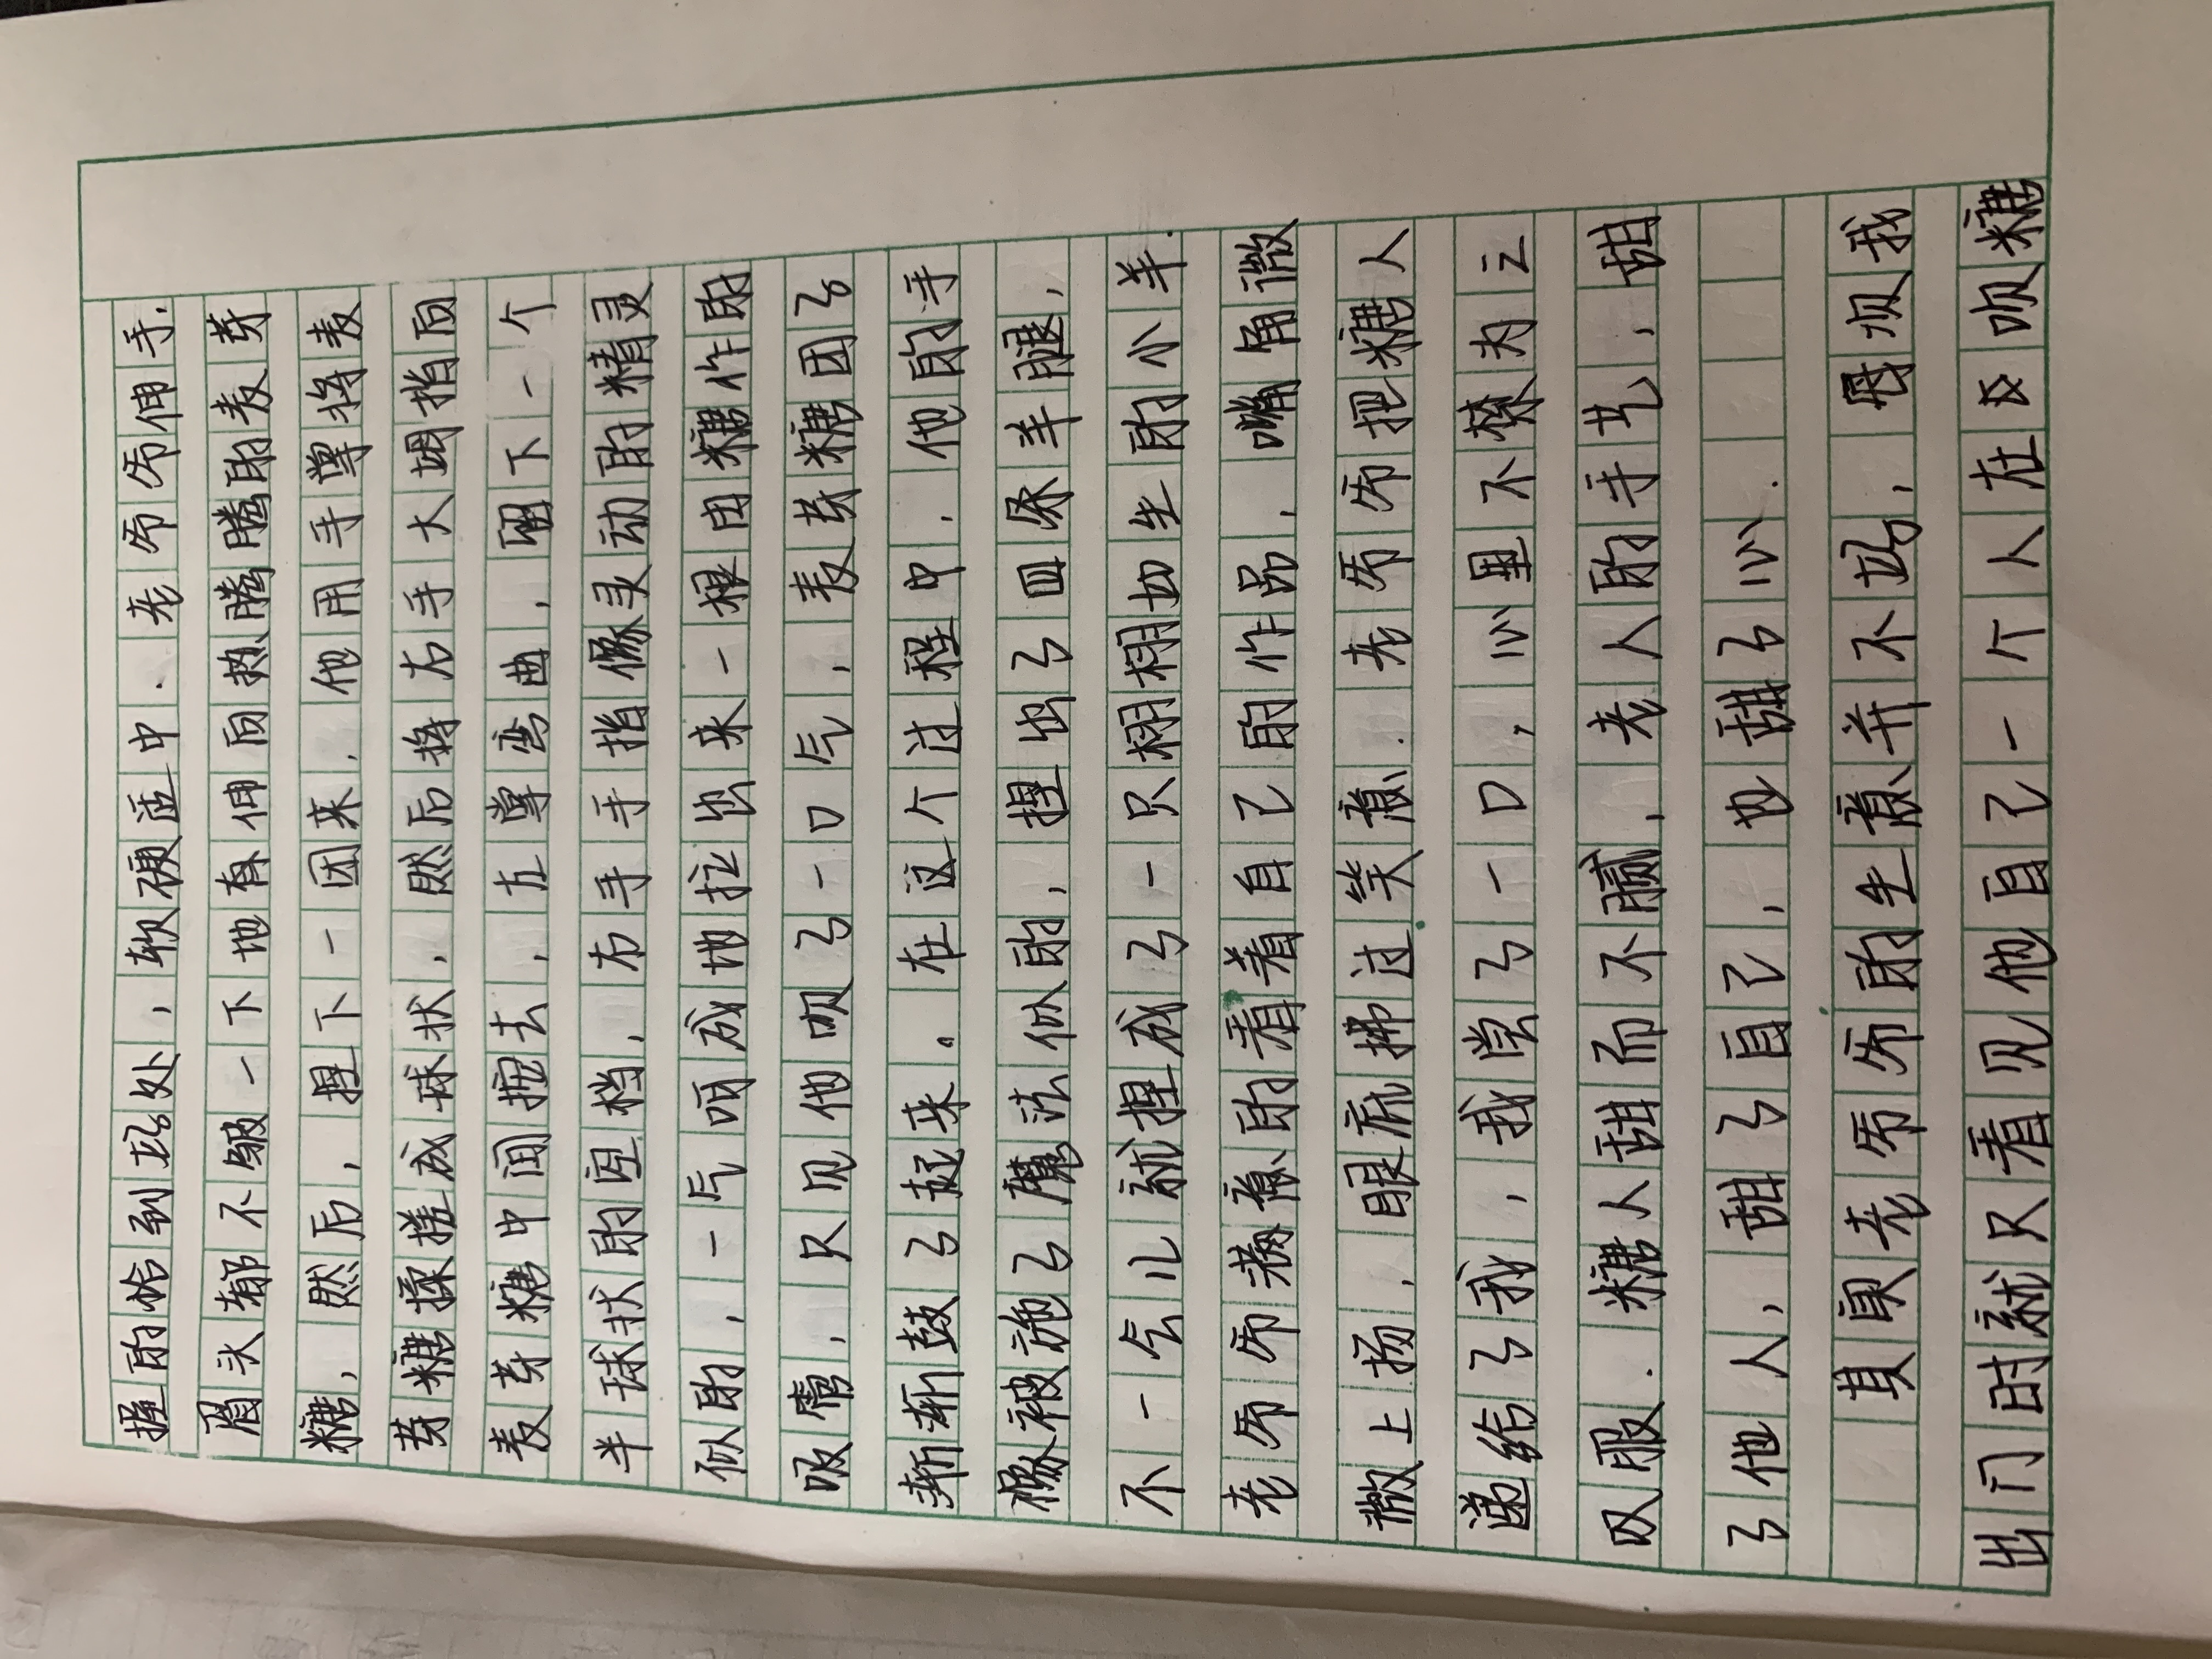 握的恰到好处，软硬适中．老师傅伸手．
眉头都不皱一下地有伸向热腾腾的麦芽
糖，然后，捏下一团来，他用手掌将麦
芽糖揉搓成球状，然后将右手大拇指向
麦芽糖中间按去，左掌弯曲，留下一个
半球状的空档，右手手指像灵动的精灵
似的，一气呵成地拉出来一根用糖作的
吸管，只见他吹了一口气，麦芽糖团了
渐渐鼓了起来。在这个过程中，他的手
像被施了魔法似的，捏出了四条羊腿，
不一会儿就捏成了一只栩栩如生的小羊．
老师傅满意的看着自己的作品，嘴角微
微上扬，眼底拂过笑意．老师傅把糖人
递给了我，我尝了一口，心里不禁为之
叹服．糖人甜而不腻，老人的手艺，甜
了他人，甜了自己，也甜了心．
其实老师傅的生意并不好，每次我
出门时就只看见他自己一个人在吹糖